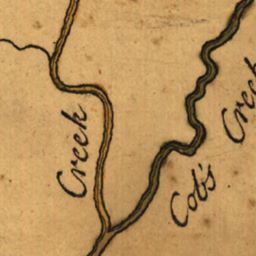 Creek
Cob's
Creek